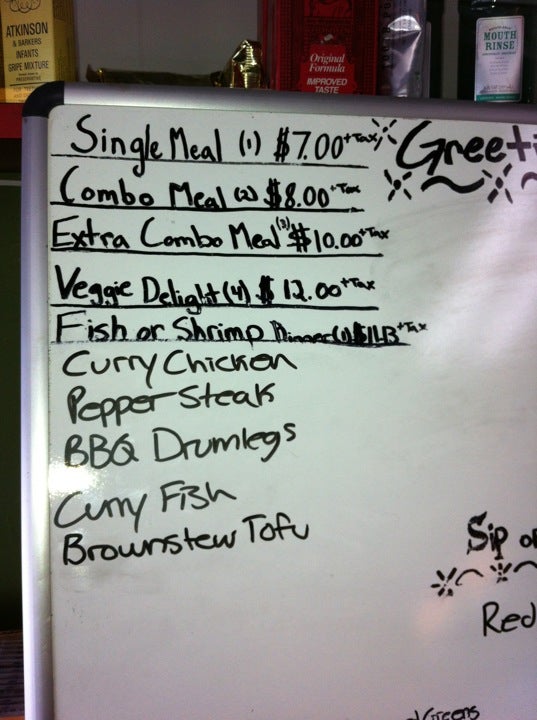 ATKINSON
& BARKERS
INFANTS
GRIPE MIXTURE
Original
Formula
IMPROVED
TASTE
MOUTH
RINSE
Single Meal (1) $7.00 +Tax
Greeti
Combo Meal (2) $8.00 +Tax
Extra Combo Meal (3) $10.00 +Tax
Veggie Delight (4) $12.00 +Tax
Fish or Shrimp Dinner (1) +Tax
Curry Chicken
Pepper Steak
BBQ Drumlegs
Curry Fish
Brownstew Tofu
Sip o
Red
Greens